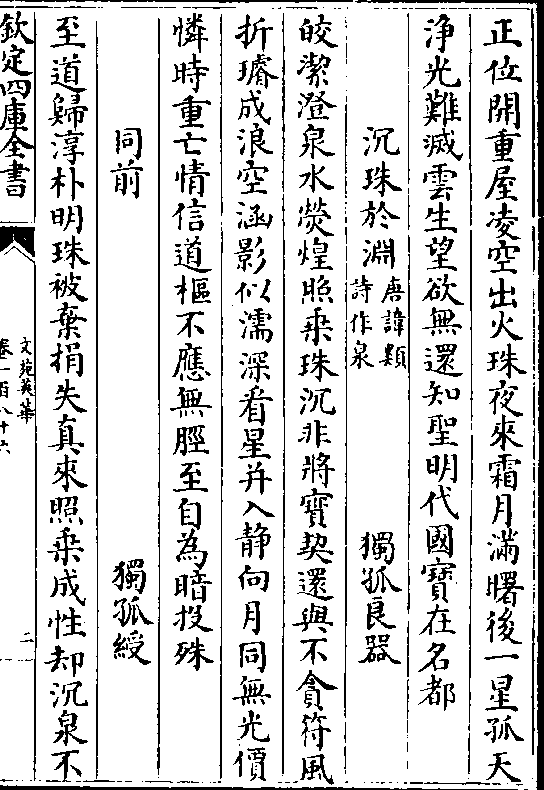 正位開重屋凌空出火珠夜來霜月滿曙後一星孤天
淨光難滅雲生望欲無還知聖明代國寶在名都
沉珠於淵唐諱類詩作泉 獨孤良器
皎潔澄泉水熒煌照乗珠沉非將寳契還與不貪符風
折璿成浪空涵影似濡深看星并入静向月同無光價
憐時重亡情信道樞不應無脛至自為暗投殊
同前 獨孤綬
至道歸淳朴明珠被棄捐失真來照乗成性却沉泉不
欽定四庫全書
文苑英華
卷一百八十六
二